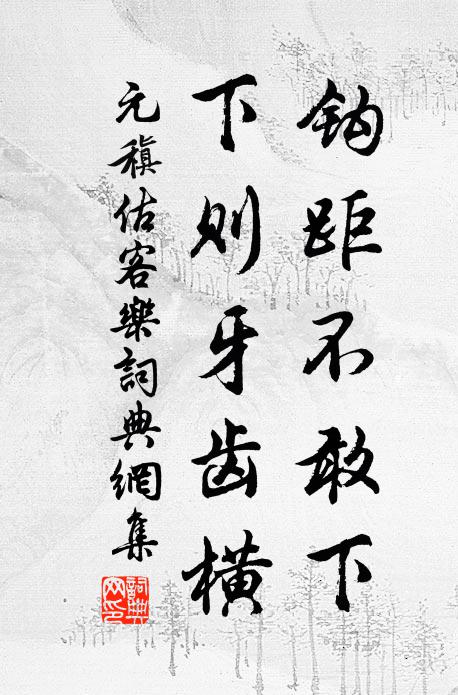 钩距不敢下
下则牙齿横
元稹估客樂詞典網集
詞典
网印